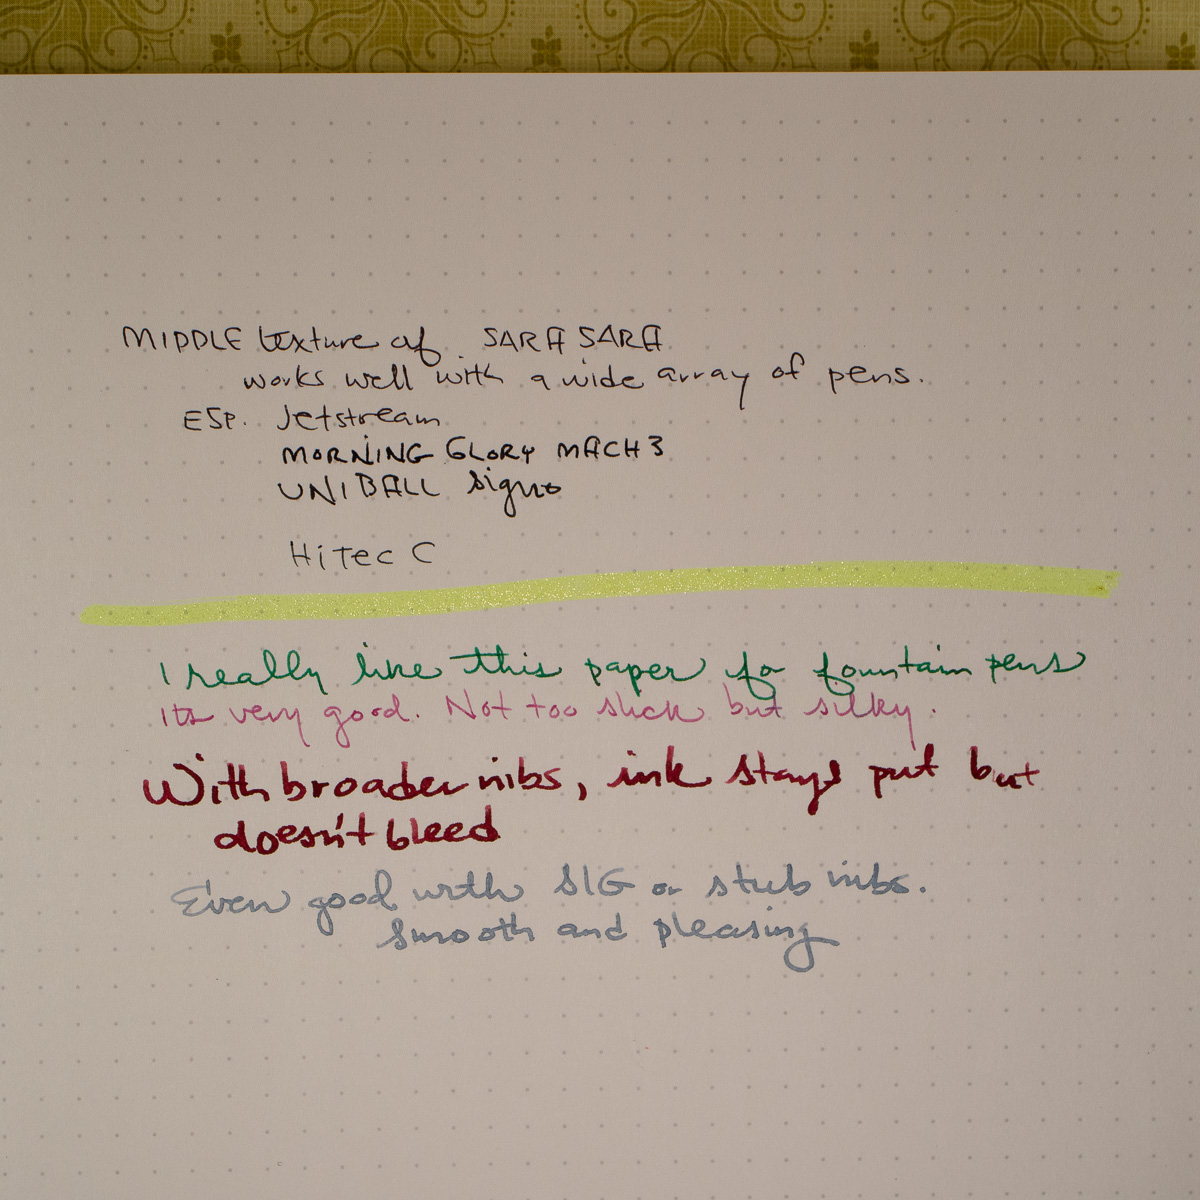 MIDDLE texture of SARA SARA
works well with a wide array of pens.
ESP. Jetstream
MORNING GLORY MACH 3
UNIBALL Signo
HiTec C
I really like this paper for fountain pens
its very good. Not too slick but silky.
With broader nibs, ink stays put but
doesn't bleed
Even good with SIG or stub nibs.
Smooth and pleasing